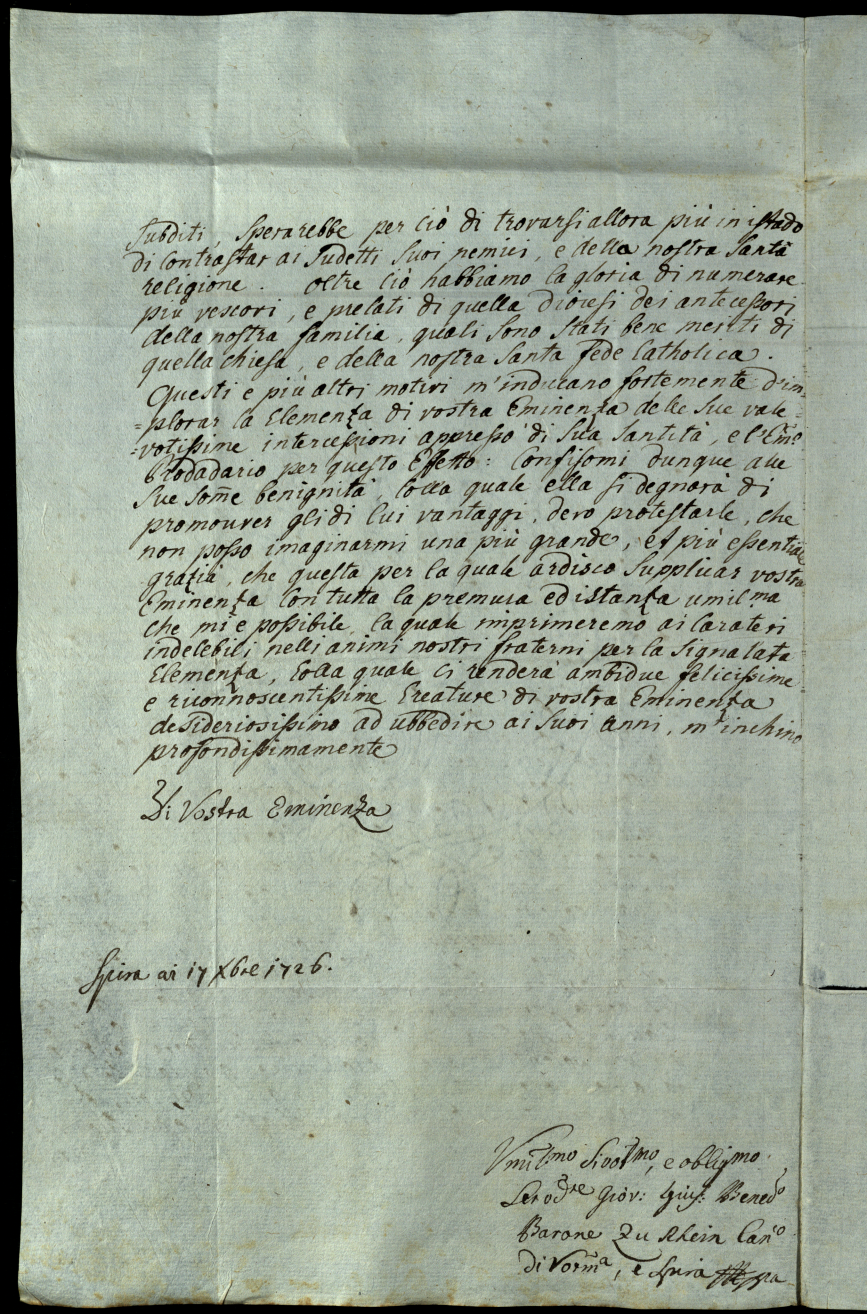 Subditi, sperarebbe per ciò di trovarsi allora più in istado
di contrastar ai sudetti suoi nemici, e della nostra Santa
religione. oltre ciò habbiamo la gloria di numerare
più vescovi, e prelati di quella diocesi dei antecessori
della nostra familia, quali sono stati bene meriti di
quella chiesa, e della nostra Santa fede Catholica.
Questi e più altri motivi m'inducano fortemente d'im=
=plorar la Clemenza di vostra Eminenza delle sue vale=
=votissime intercessioni appresso di Sua Santità, e l'Emo
Prodadario per questo Effetto: Confisomi dunque alle
sue some benignità, colla quale ella si degnarà di
promouver gli di lui vantaggi, devo protestarle, che
non posso imaginarmi una più grande, et più essentiale
grazia, che questa per la quale ardisco supplicar vostra
Eminenza con tutta la premura ed istanza umil.ma
che mi e possibile, la quale imprimeremo ai carateri
indelebili nelli animi nostri fraterni per la signalata
Clemenza, colla quale ci renderà ambidue felicissime
e riconnoscentissime Creature di vostra Eminenza
desideriosissimo ad ubbedire ai suoi cenni, m'inchino
profondissimamente
Di Vostra Eminenza
Spira ai 17 Xbre 1726.
Umilmo divotmo, e obligmo
Servdre Giov: Gius: Benedo
Barone Zu Rhein Cano
di Vorma, e Spira